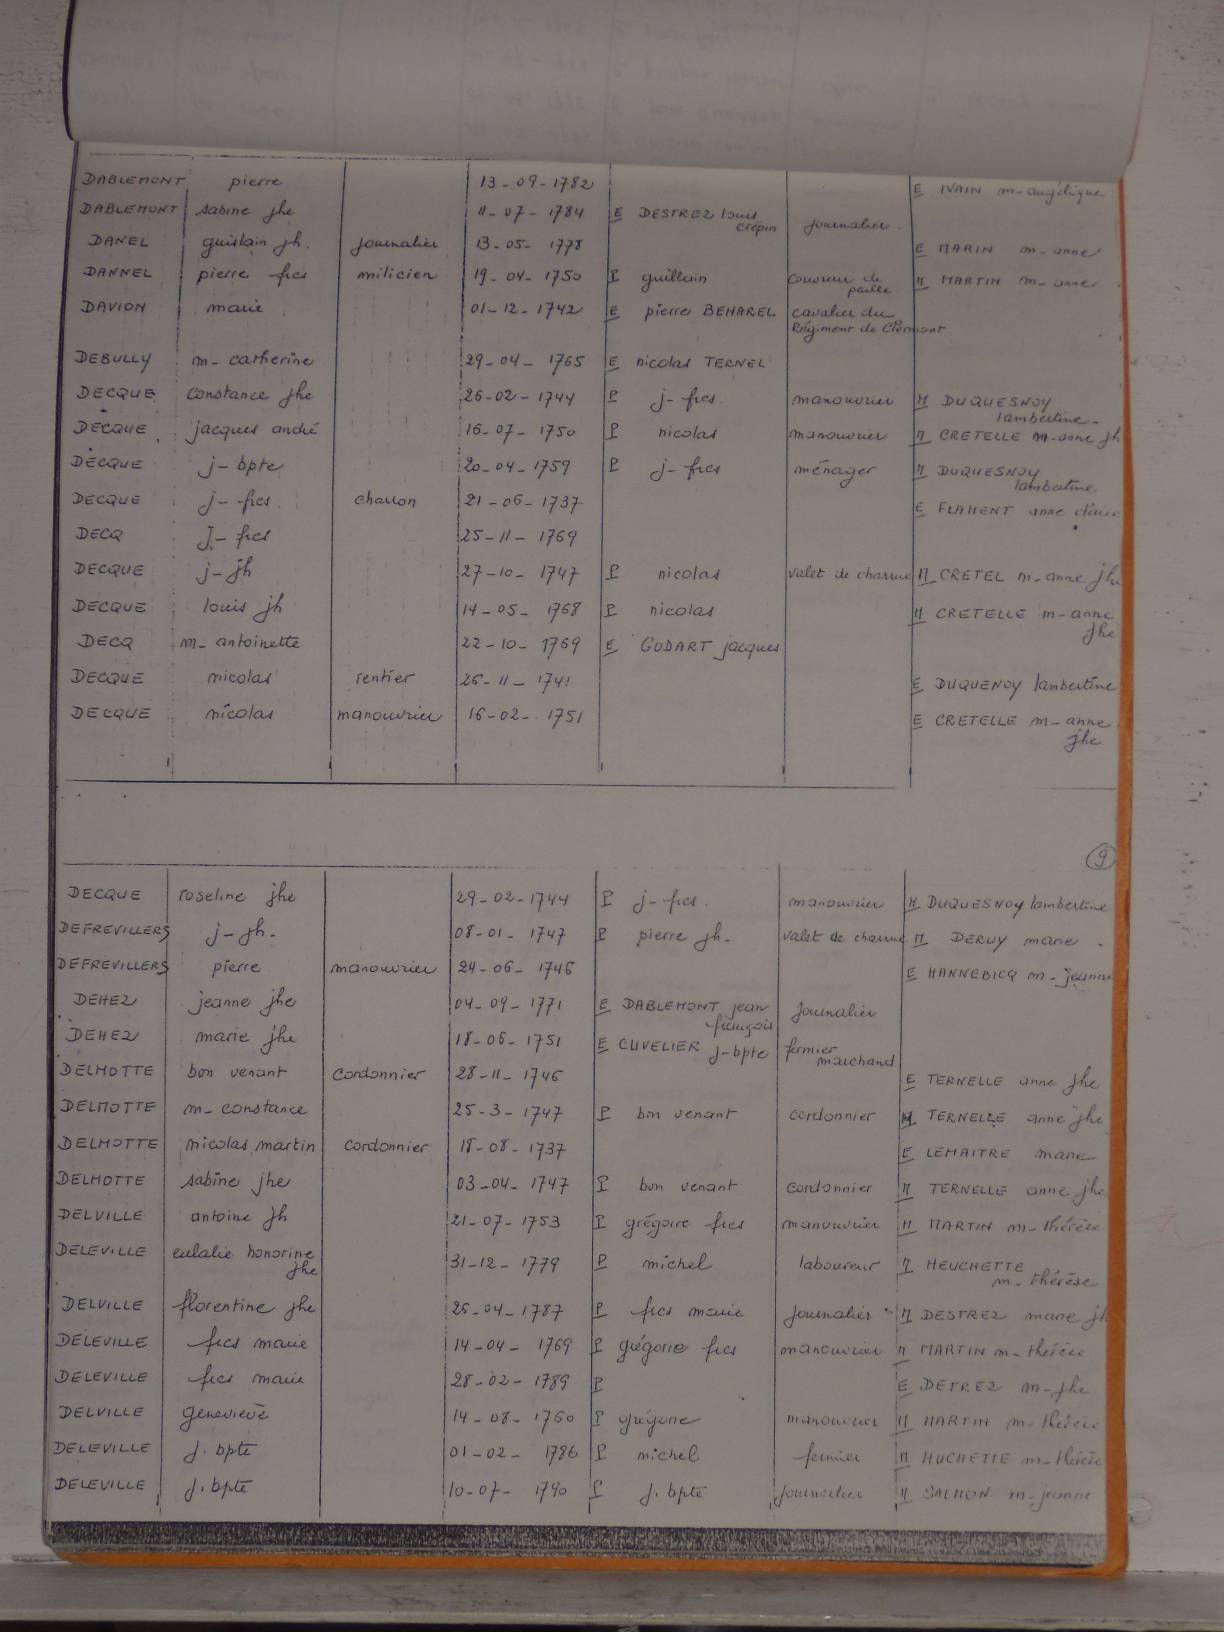 DABLEMONT pierre 13-09-1782 E IVAIN m-angélique
DABLEMONT sabine jhe 11-07-1784 E DESTREZ louis crépin journalier
DANEL guislain jh. journalier 13-05-1778 E MARIN m-anne
DANNEL pierre fçes milicien 19-04-1750 P guillain couvreur de paille M MARTIN m-anne
DAVION marie 01-12-1742 E pierre BEHAREL cavalier du
Régiment de Clermont
DEBULLY m-catherine 29-04-1765 E nicolas TERNEL
DECQUE constance jhe 26-02-1744 P j-fçes. manouvrier M DUQUESNOY
lambertine-
DECQUE jacques andré 16-07-1750 P nicolas manouvrier M CRETELLE m-anne jh
DECQUE j-bpte 20-04-1759 P j-fçes ménager M DUQUESNOY
lambertine.
DECQUE j-fçes. charron 21-06-1737 E FLAMENT anne claire
DECQ J-fçes 25-11-1769
DECQUE j-jh 27-10-1747 P nicolas valet de charrue M CRETEL m-anne jhe
DECQUE louis jh 14-05-1768 P nicolas M CRETELLE m-anne
jhe
DECQ m-antoinette 22-10-1769 E GODART jacques
DECQUE nicolas rentier 26-11-1741 E DUQUENOY lambertine
DECQUE nicolas manouvrier 16-02-1751 E CRETELLE m-anne
jhe
9
DECQUE roseline jhe 29-02-1744 P j-fçes. manouvrier M DUQUESNOY lambertine
DEFREVILLERS j-jh. 08-01-1747 P pierre jh. valet de charrue M DERUY marie
DEFREVILLERS pierre manouvrier 24-06-1746 E HANNEBICQ m-jeanne
DEHEZ jeanne jhe 04-09-1771 E DABLEMONT jean
françois journalier
DEHEZ marie jhe 18-05-1751 E CUVELIER j-bpte fermier
marchand
DELMOTTE bon venant cordonnier 28-11-1746 E TERNELLE anne jhe
DELMOTTE m-constance 25-3-1747 P bon venant cordonnier M TERNELLE anne jhe
DELMOTTE nicolas martin cordonnier 18-08-1737 E LEMAITRE marie
DELMOTTE sabine jhe 03-04-1747 P bon venant cordonnier M TERNELLE anne jhe
DELVILLE antoine jh 21-07-1753 P grégoire fçes manouvrier M MARTIN m-thérèse
DELEVILLE eulalie honorine
jhe 31-12-1779 P michel laboureur M HEUCHETTE
m.thérèse
DELVILLE florentine jhe 25-04-1787 P fçes marie journalier M DESTREZ marie jh
DELEVILLE fçes marie 14-04-1769 P grégorie fçes manouvrier M MARTIN m-thérèse
DELEVILLE fçes marie 28-02-1789 P E DETREZ m-jhe
DELVILLE geneviève 14-08-1760 P grégorie manouvrier M MARTIN m-thérèse
DELEVILLE j.bpte 01-02-1786 P michel fermier M HUCHETTE m-thérèse
DELEVILLE j.bpte 10-07-1790 P j.bpte journalier M SALMON m-jeanne